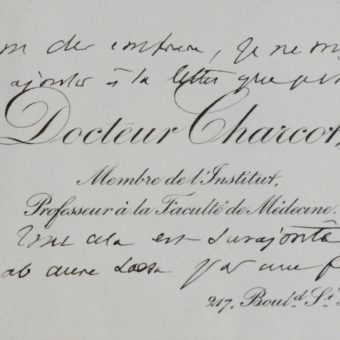 der confrere, je ne m
ajouter à la lettre que
Docteur Charcot,
Membre de l'Institut,
Professeur à la Faculté de Médecine.
Tout cela est surajouté
par une
217, Boul.d St.